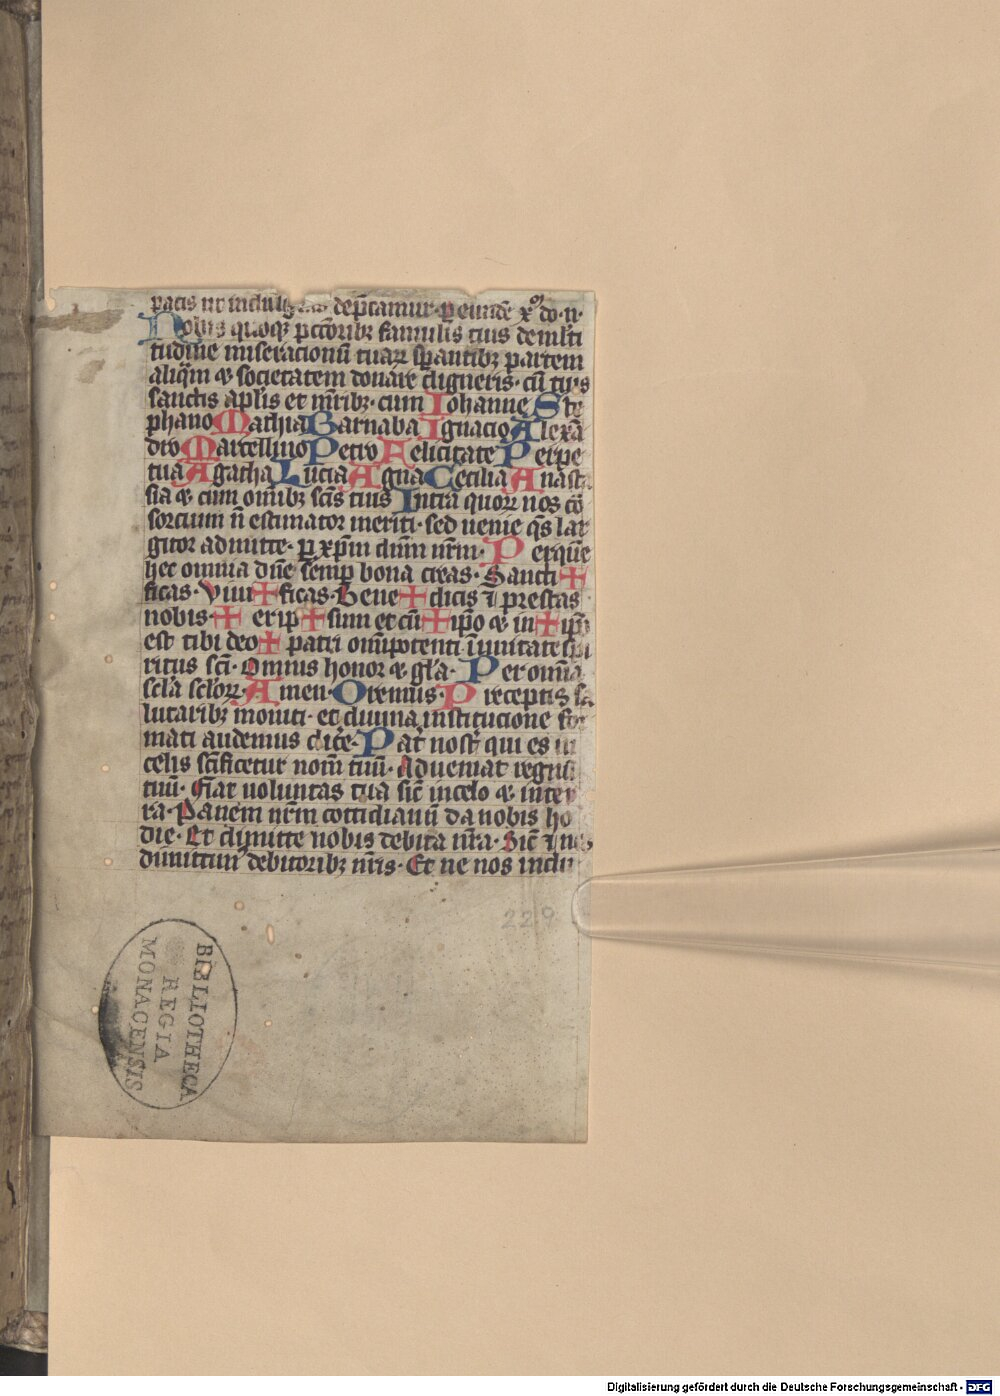 pacis ut indulg depͨamur· ꝑ eundē xͫ do· n·
Nobis quoqꝫ pctōribꝫ famulis tuis de mlti
tudine miseracionū tuaꝝ spantibꝫ partem
aliqͣm ⁊ societatem donare digneris· cū tuis
sanctis aplis et mr̄ibꝫ· cum Iohanne Ste
phano Mathia Barnaba Ignacio Alexā
dro Marcellino Petro Felicitate Perpe
tua Agatha Lucia Agna Cecilia Anasta
sia ⁊ cum omībꝫ scīs tuis Intra quoꝝ nos cō
sorcium n̄ estimator meriti· sed uenie qs̄ lar
gitor admitte· ꝑ xp̄m dūm nr̄m· Per quē
hec omnia dn̄e semꝑ bona creas· Sancti ✚
ficas· Viui ✚ ficas· Bene ✚ dicis ⁊ prestas
nobis· ✚ er ip ✚ sum et cū ✚ ip̄o ⁊ in ✚ ip̄o
est tibi deo ✚ patri om̄ipotenti ī unitate spi
ritus scī· Omnis honor ⁊ gl̄a· Per omīa
scl̄a scl̄oꝝ Amen· Oremus· Preceptis sa
lutaribꝫ moniti· et diuina institucione for
mati audemus dicē· Pat̄ nost̄ qui es in
celis scīficetur nom̄ tuū· Adueniat regnū
tuū· Fiat uoluntas tua sic̄ in celo ⁊ in ter
ra· Panem nr̄m cottidianū da nobis ho
die· Et dimitte nobis debita nr̄a· Sic̄ ⁊ nos
dimittim᷒ debitoribꝫ nr̄is· Et ne nos indu
229
BIBLIOTHECA
REGIA
MONACENSIS
Digitalisierung gefördert durch die Deutsche Forschungsgemeinschaft - DFG